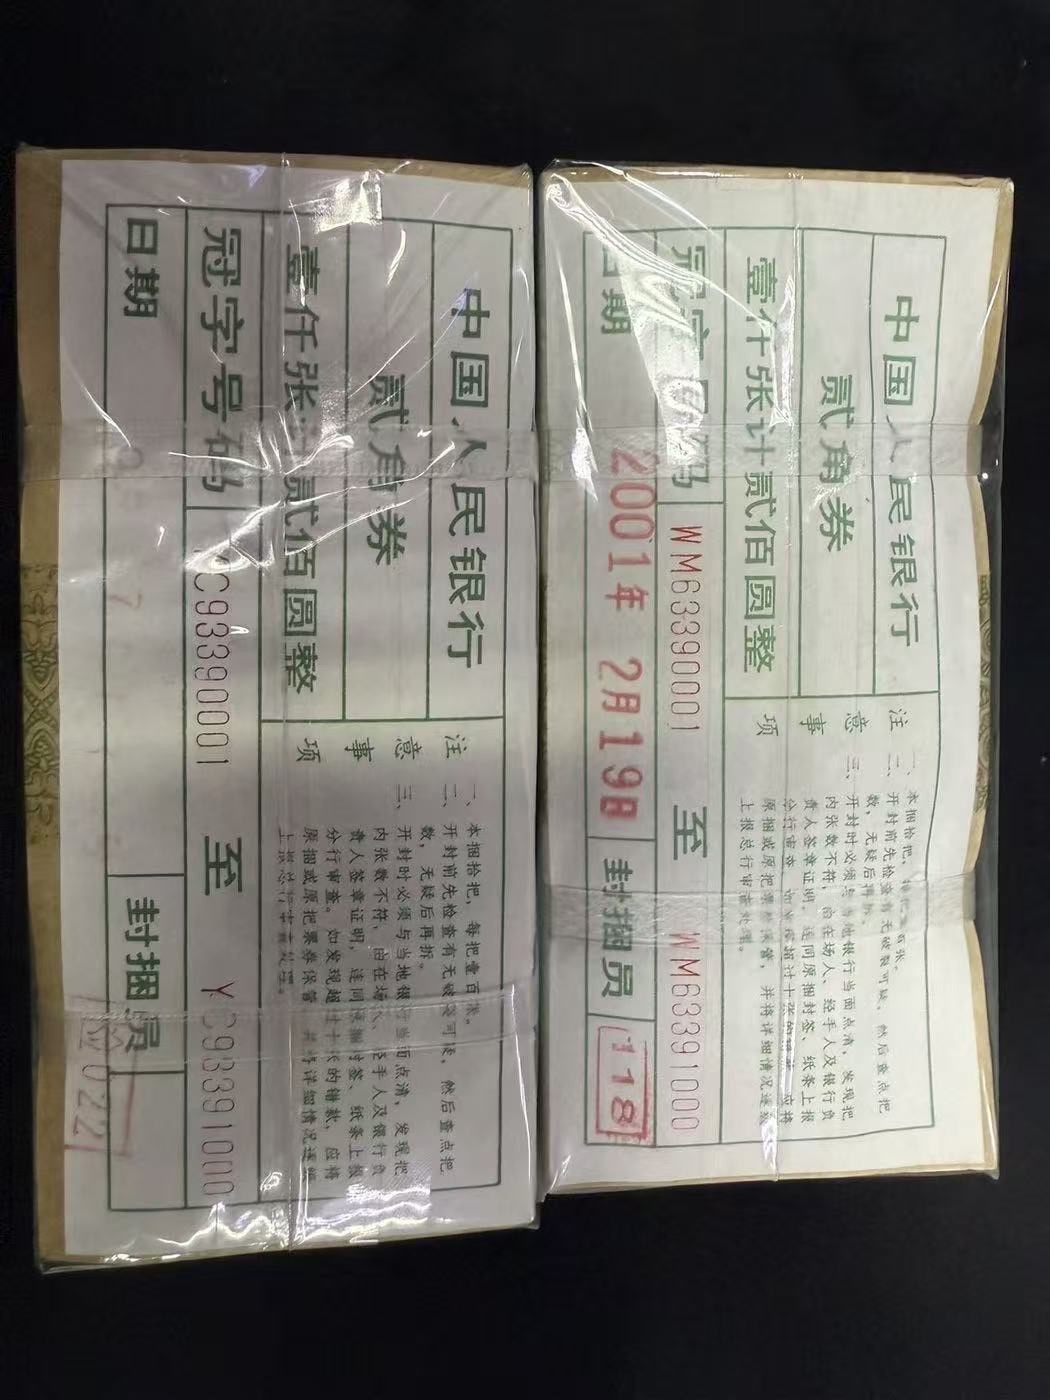 中国人民银行
贰角券
壹仟张计贰佰圆整
冠字号码 WM63390001 至 WM63391000
日期 2001年 2月19日 封捆员 118
注意事项
一、本捆拾把，每把壹百张。
二、开封前先检查有无破裂可疑，然后查点把
数，无疑后再拆。
三、开封时必须与当地银行当面点清，发现把
内张数不符，由在场人、经手人及银行负
责人签章证明，连同原捆封签、纸条上报
分行审查。如发现超过十张的错款，应将
原捆或原把票券保管，并将详细情况逐级
上报总行审查处理。
中国人民银行
贰角券
壹仟张计贰佰圆整
冠字号码 C93390001 至 YC93391000
日期 封捆员 0222
注意事项
一、本捆拾把，每把壹百张。
二、开封前先检查有无破裂可疑，然后查点把
数，无疑后再拆。
三、开封时必须与当地银行当面点清，发现把
内张数不符，由在场人、经手人及银行负
责人签章证明，连同原捆封签、纸条上报
分行审查。如发现超过十张的错款，应将
原捆或原把票券保管，并将详细情况逐级
上报总行审查处理。